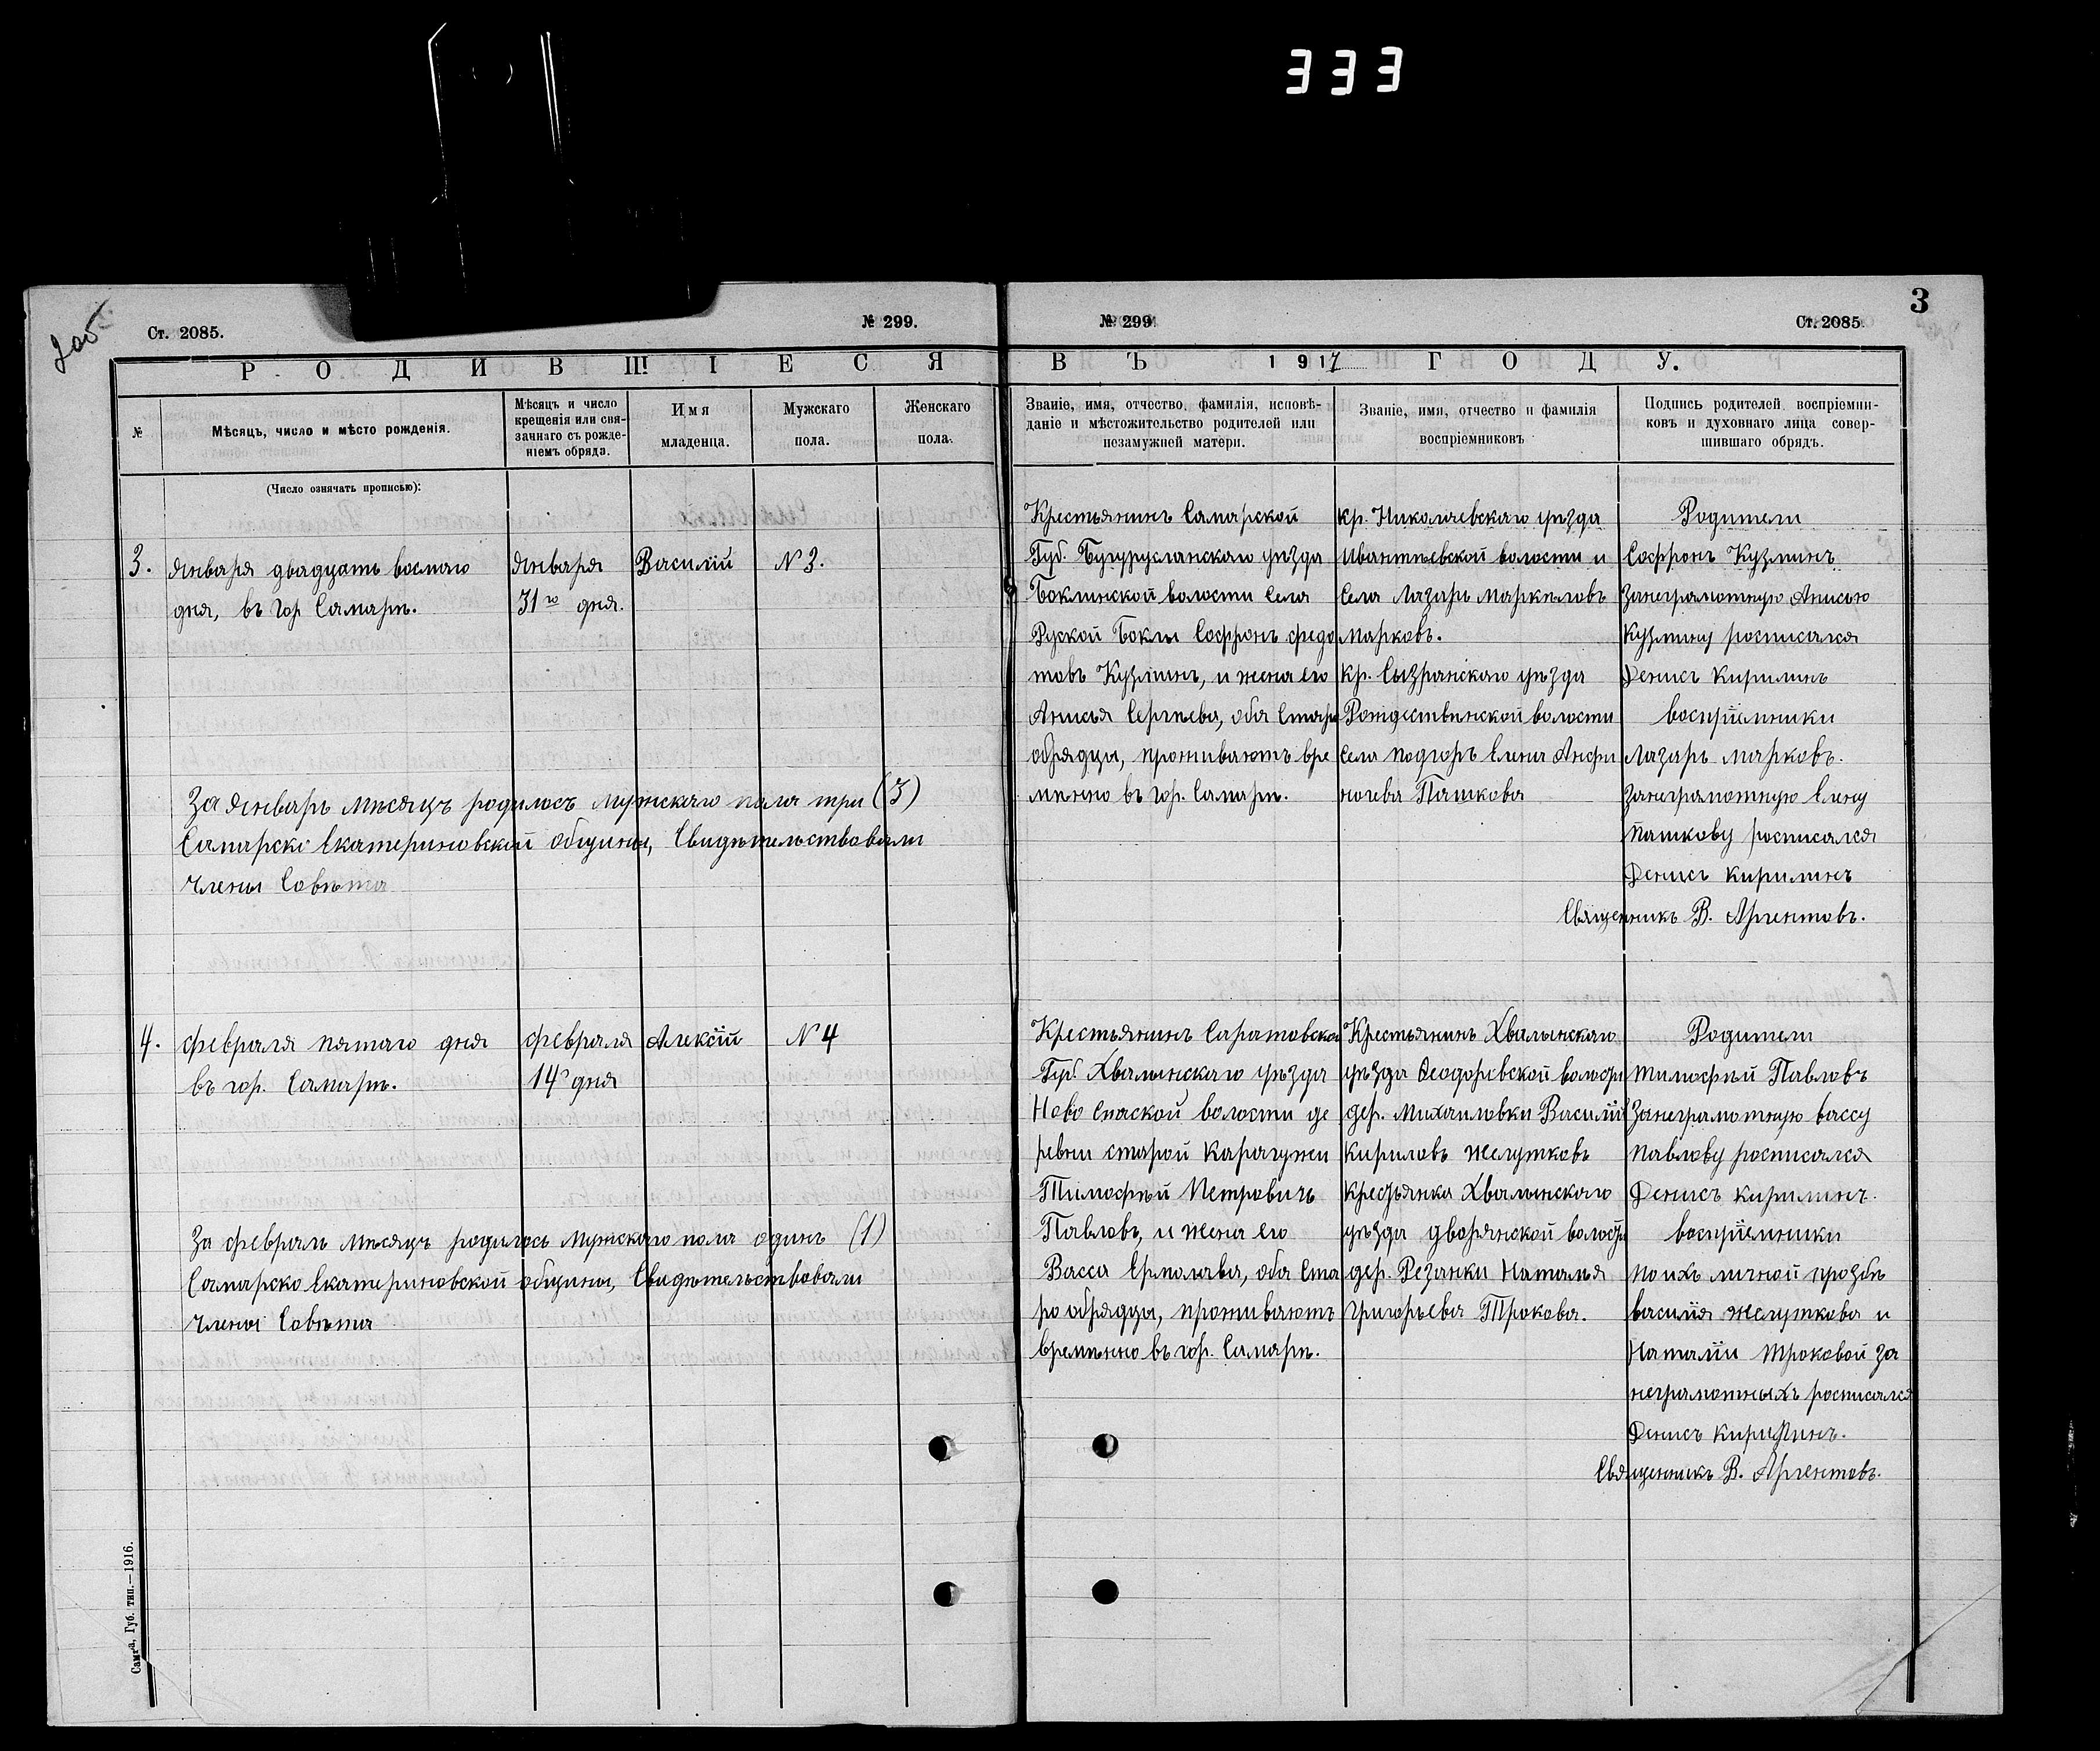 333
3
Ст. 2085.
№ 299.
№ 299
Ст. 2085.
РОДИВШІЕСЯ
ВЪ 1917 ГОДУ.
№
Мѣсяцъ, число и мѣсто рожденія.
Мѣсяцъ и число
крещенія или свя-
заннаго съ рожде-
ніемъ обряда.
Имя
младенца.
Мужскаго
пола.
Женскаго
пола.
Званіе, имя, отчество, фамилія, исповѣ-
даніе и мѣстожительство родителей или
незамужней матери.
Званіе, имя, отчество и фамилія
воспріемниковъ
Подпись родителей воспріемни-
ковъ и духовнаго лица совер-
шившаго обрядъ.
(Число означать прописью):
3.
Января двадцать восмаго
дня, въ гор. Самарѣ.
Января
31го дня.
Василий
N 3.
Крестьянинъ Самарской
Губ. Бугурусланскаго уѣзда
Боклинской волости села
Руской Боклы Софронъ Федо
товъ Кузминъ, и жена его
Анисья Сергѣева, оба Старо
обрядцы, проживаютъ вре
мѣнно въ гор. Самарѣ.
кр. Николаевскаго уѣзда
Ивантѣевской волости и
села Лазарь Маркѣловъ
Марковъ.
кр. Сызранскаго уѣзда
Рождественской волости
села Подгоръ Елена Анфи
ногева Пашкова
Родители
Софронъ Кузминъ
Занеграмотную Анисью
Кузмину росписался
Денисъ Кирилинъ
воспрiемники
Лазарь Марковъ.
Занеграмотную Елену
Пашкову росписался
Денисъ Кирилинъ
Священникъ В. Аргентовъ.
За Январь Мѣсяцъ родилось мужскаго пола три (3)
Самарско Екатериновской общины, Свидѣтельствовали
Члены Совѣта
4.
Февраля пятаго дня
въ гор. Самарѣ.
Февраля
14 дня
Алексiй
N 4
Крестьянинъ Саратовской
Губ. Хвалынскаго уѣзда
Ново Спаской волости де
ревни старой
Тимофѣй Петровичъ
Павловъ, и жена его
Васса Ермолаева, оба Ста
ро обрядцы, проживаютъ
времѣнно въ гор. Самарѣ.
Крестьянинъ Хвалынскаго
уѣзда Ѳеодоровской волости
дер. Михаиловки Василий
Кириловъ Желутковъ
Крестьянка Хвалынскаго
уѣзда дворянской волости
дер. Резанки Наталья
Григорьева Трокова.
Родители
Тимофѣй Павловъ
Занеграмотную Вассу
Павлову росписался
Денисъ Кирилинъ.
воспрiемники
по ихъ личной прозбѣ
василия Желуткова и
Наталiи Троковой за
неграмотныхъ росписался
Денисъ Кирилинъ.
Священникъ В. Аргентовъ.
За Февраль Мѣсяцъ родилось Мужскаго пола одинъ (1)
Самарско Екатериновской общины, Свидѣтельствовали
Члены Совѣта
Самара, Губ. тип.—1916.